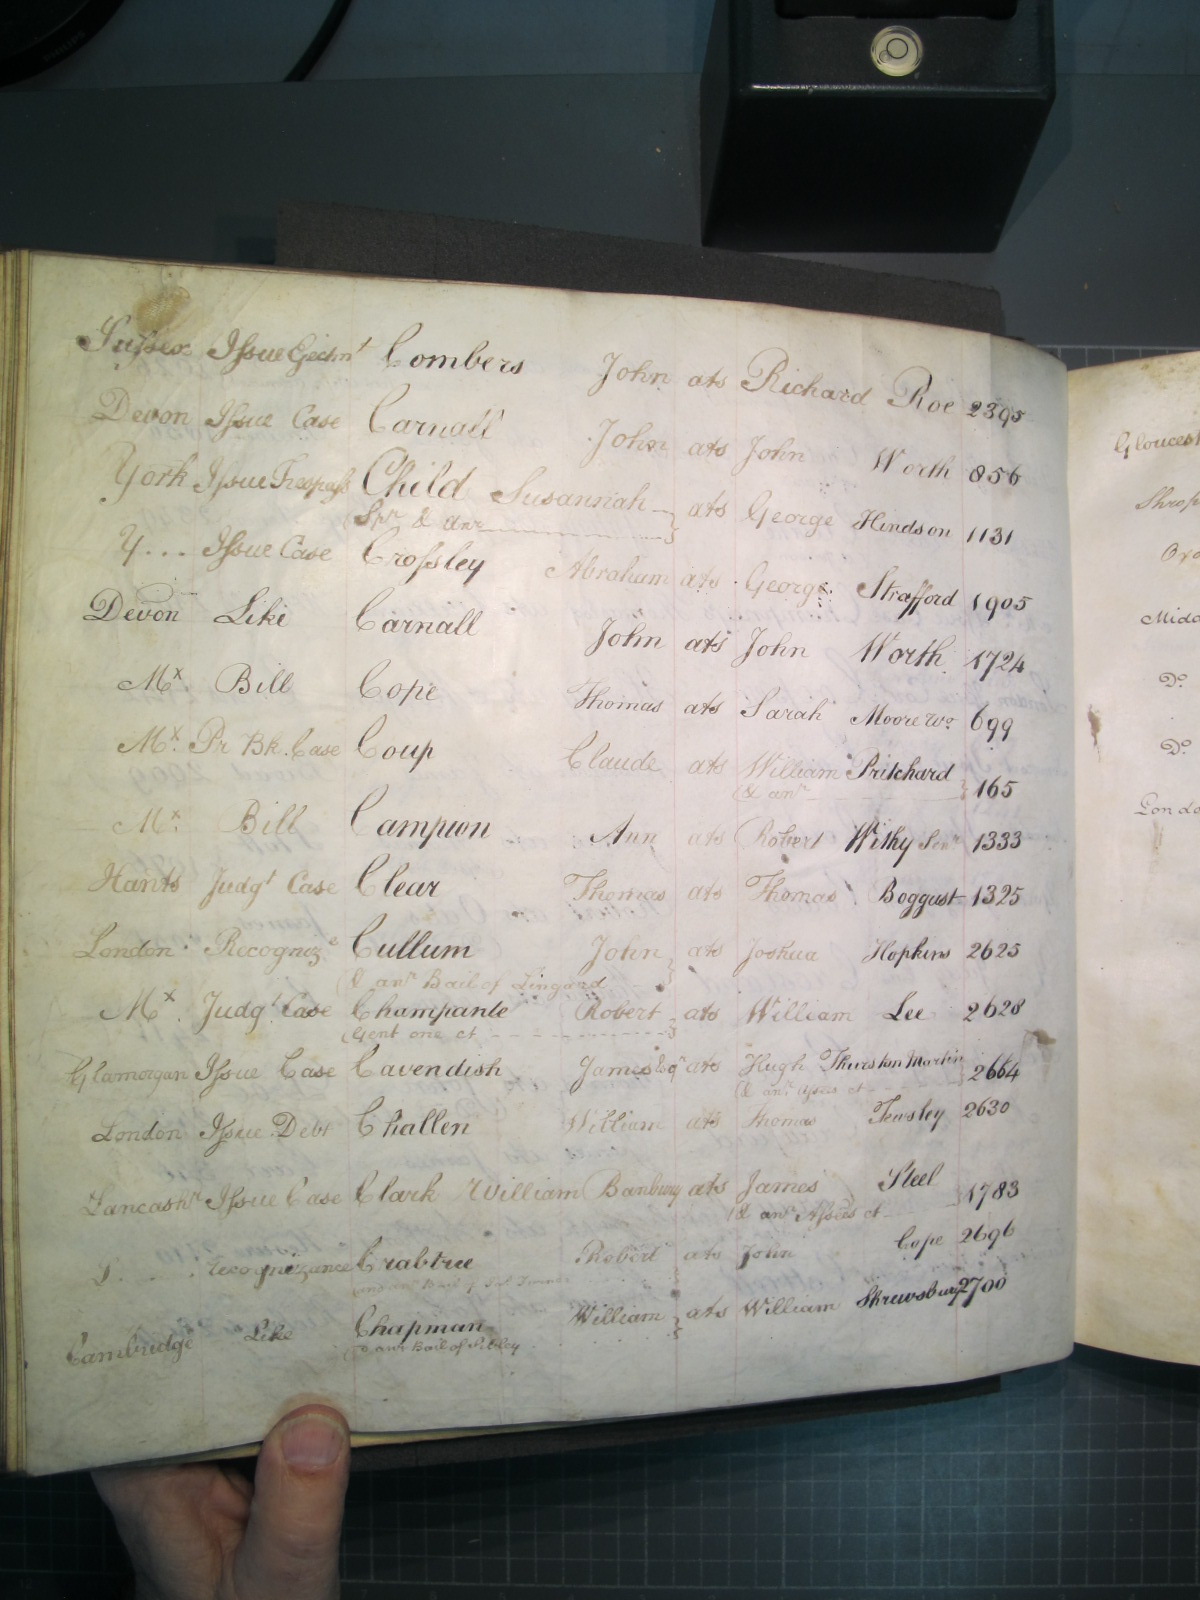 Sussex Issue Ejectmt Combers John ats Richard Roe 2395
Devon Issue Case Carnall John ats John Worth 856
York Issue Trespass Child Susannah ats George Hindson 1131
Spr & anr
Y... Issue Case Crossley Abraham ats George Strafford 1905
Devon Like Carnall John ats John Worth 1724
Mx. Bill Cope Thomas ats Sarah Moore Wo. 699
Mx. Pr Bk. Case Coup Claude ats William Pritchard 165
& anr
Mx. Bill Campion Ann ats Robert Withy Senr 1333
Hants Judgt Case Clear Thomas ats Thomas Boggust 1325
London Recognize Cullum John ats Joshua Hopkins 2625
& anr Bail of Lingard
Mx. Judgt Case Champante Robert ats William Lee 2628
Gent one ct
Glamorgan Issue Case Cavendish James Esqr ats Hugh Thurston Martin 2664
& anr Assees ct
London Issue Debt Challen William ats Thomas Tewsley 2630
Lancashr Issue Case Clark William Banbury ats James Steel 1783
& anr Assees ct
L. Recognizance Crabtree Robert ats John Cope 2696
Bail of
Cambridge Like Chapman William ats William Shrewsbury 2700
& anr Bail of
Gloucest
Shrop
Oxo
Midd
Do.
Do.
Londo